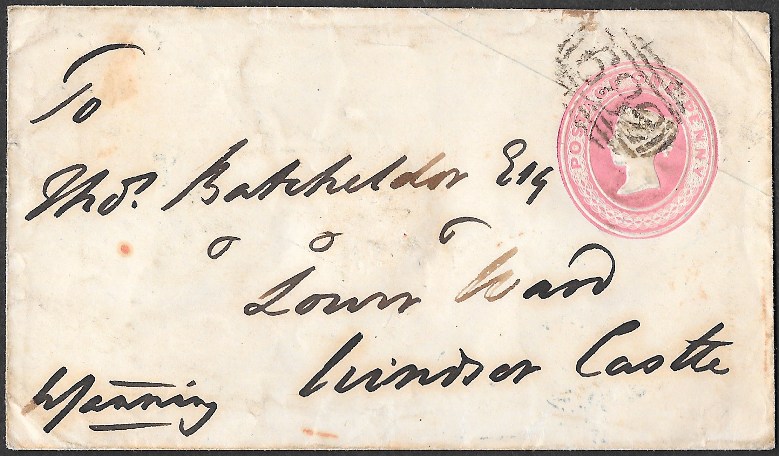 To
Thos. Batcheldor Esq
Lower Ward
Windsor Castle
Manning
POSTAGE ONE PENNY